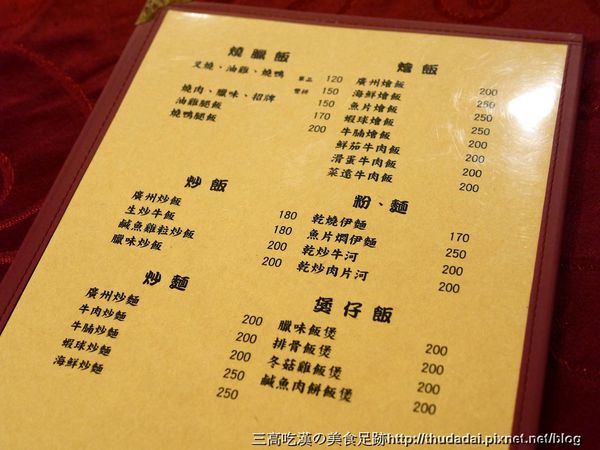 燒臘飯
叉燒、油雞、燒鴨 單品 120
雙拼 150
燒肉、臘味、招牌 150
油雞腿飯 170
燒鴨腿飯 200
燴飯
廣州燴飯 200
海鮮燴飯 250
魚片燴飯 250
蝦球燴飯 250
牛腩燴飯 200
鮮茄牛肉飯 200
滑蛋牛肉飯 200
菜遠牛肉飯 200
炒飯
廣州炒飯 180
生炒牛飯 180
鹹魚雞粒炒飯 200
臘味炒飯 200
粉、麵
乾燒伊麵 170
魚片燜伊麵 250
乾炒牛河 200
乾炒肉片河 200
炒麵
廣州炒麵 200
牛肉炒麵 200
牛腩炒麵 200
蝦球炒麵 250
海鮮炒麵 250
煲仔飯
臘味飯煲 200
排骨飯煲 200
冬菇雞飯煲 200
鹹魚肉餅飯煲 200
三高吃漢の美食足跡http://thudadai.pixnet.net/blog